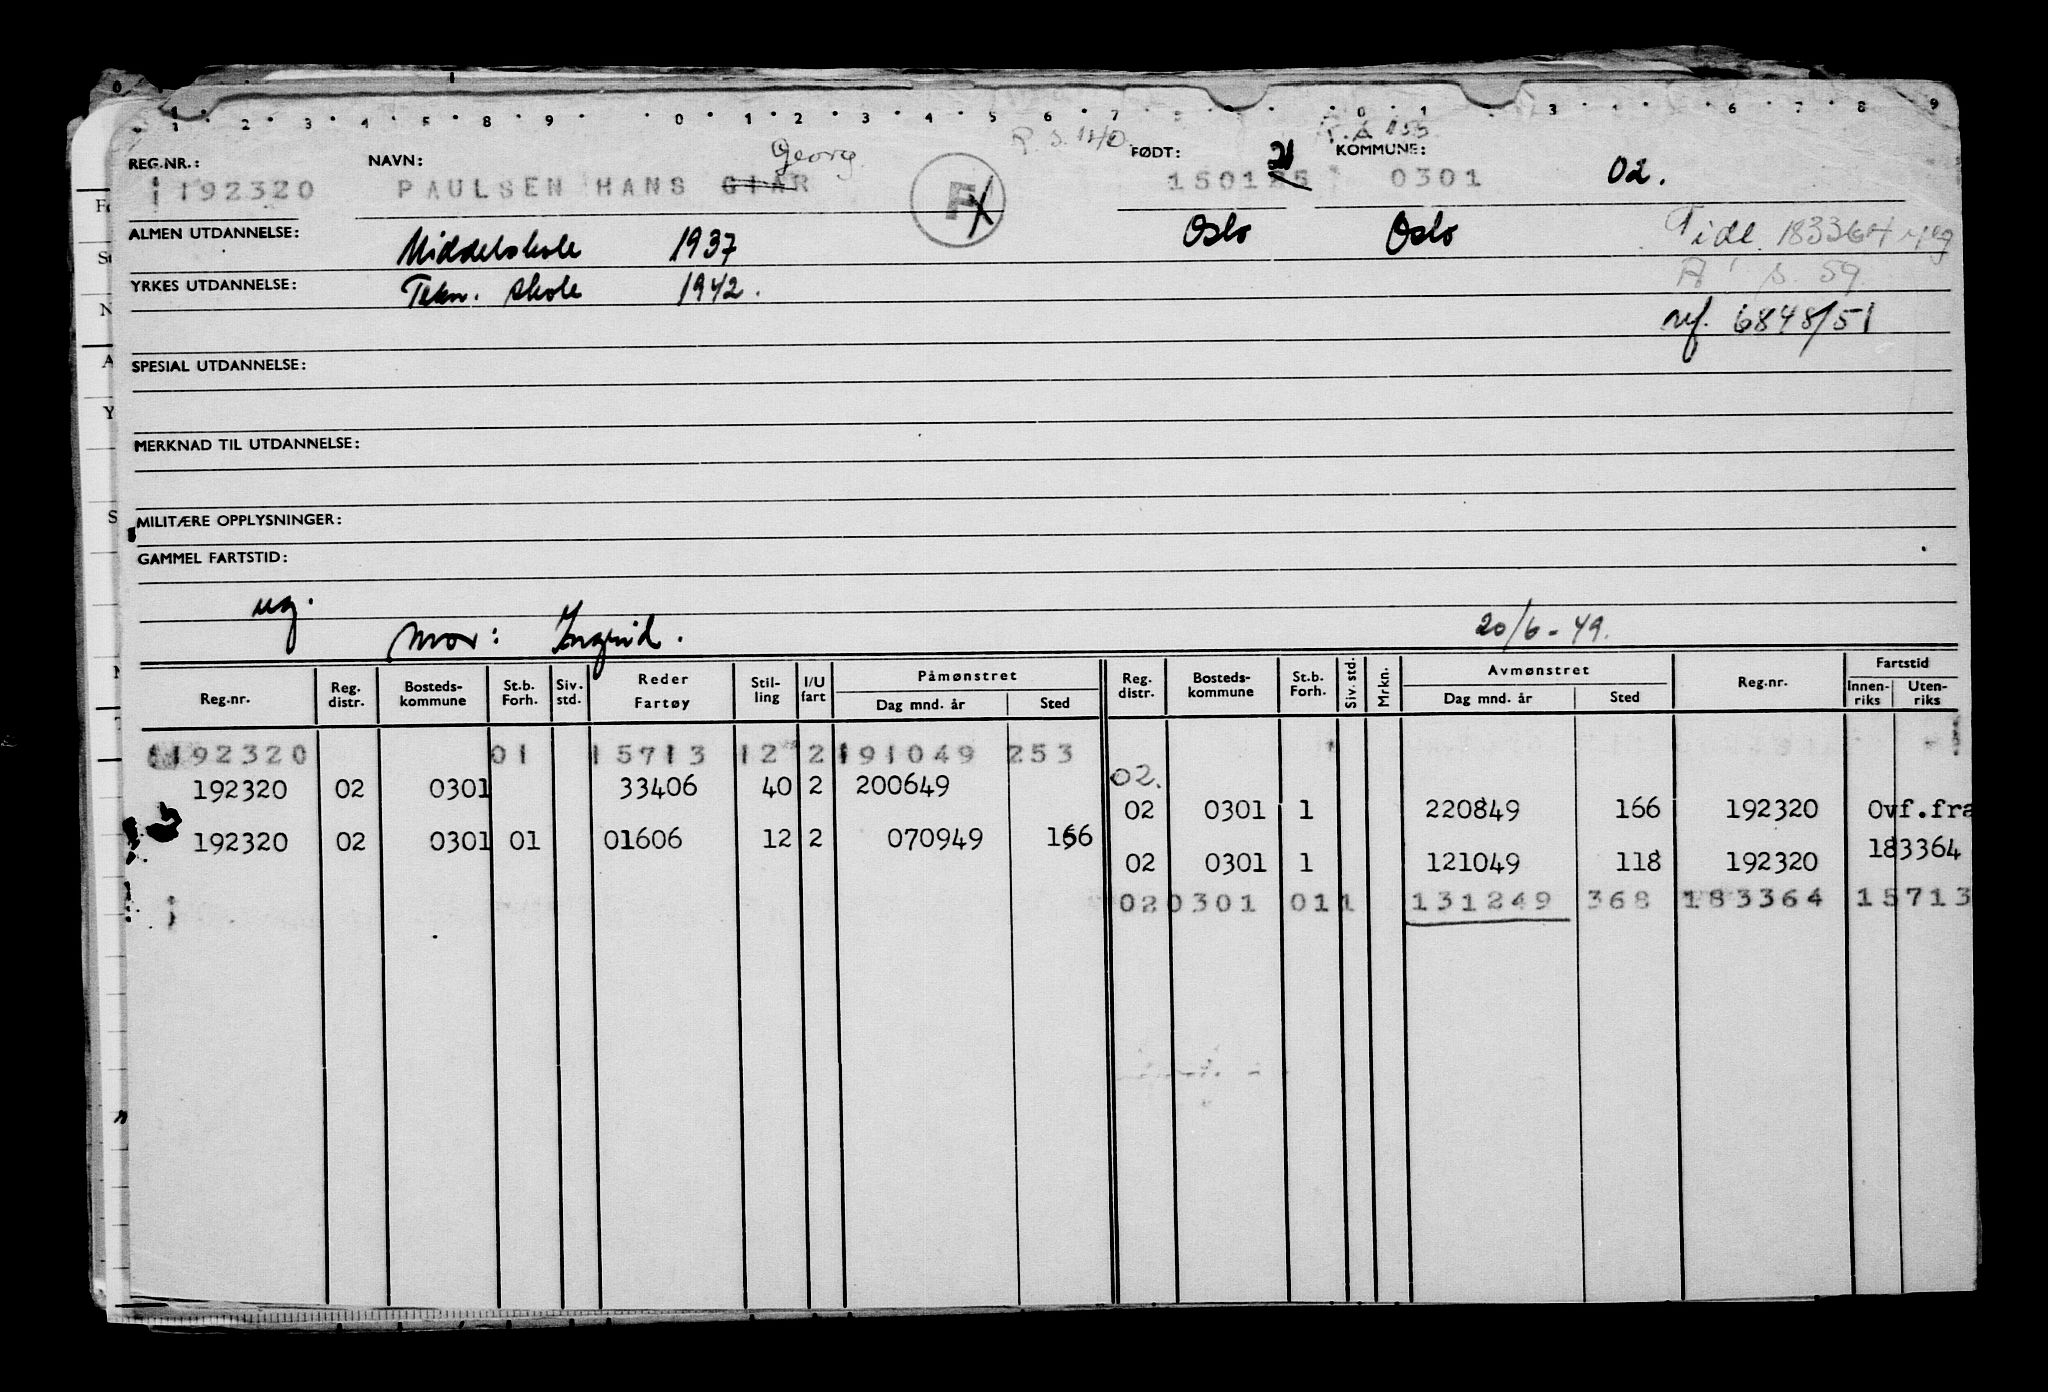 0
1 2 3 4 5 8 9 0 1 2 3 4 5 6 7 0 1 3 6 7 8 9
Georg R S. 140
REG.NR.: NAVN: FØDT: 21 KOMMUNE:
192320 PAULSEN HANS GIAR F 150125 0301 02.
ALMEN UTDANNELSE: Middelskole 1937 Oslo Oslo Tidl. 183364
YRKES UTDANNELSE: Tekn. skole 1942. A s. 59
ref. 6848/51
SPESIAL UTDANNELSE:
MERKNAD TIL UTDANNELSE:
MILITÆRE OPPLYSNINGER:
GAMMEL FARTSTID:
ug.
Mor: Ingrid. 20/6-49.
Reg.nr. Reg. distr. Bosteds-kommune St.b. Forh. Siv. std. Reder Fartøy Stil-ling I/U fart Påmønstret Dag mnd. år Sted Reg. distr. Bosteds-kommune St.b. Forh. Siv. std. Mrkn. Avmønstret Dag mnd. år Sted Reg.nr. Fartstid Innen-riks Uten-riks
192320 01 15713 12 2 191049 253
192320 02 0301 33406 40 2 200649 02.
02 0301 1 220849 166 192320 Ovf.fra
192320 02 0301 01 01606 12 2 070949 166 183364
02 0301 1 121049 118 192320
02 0301 01 1 131249 368 183364 15713